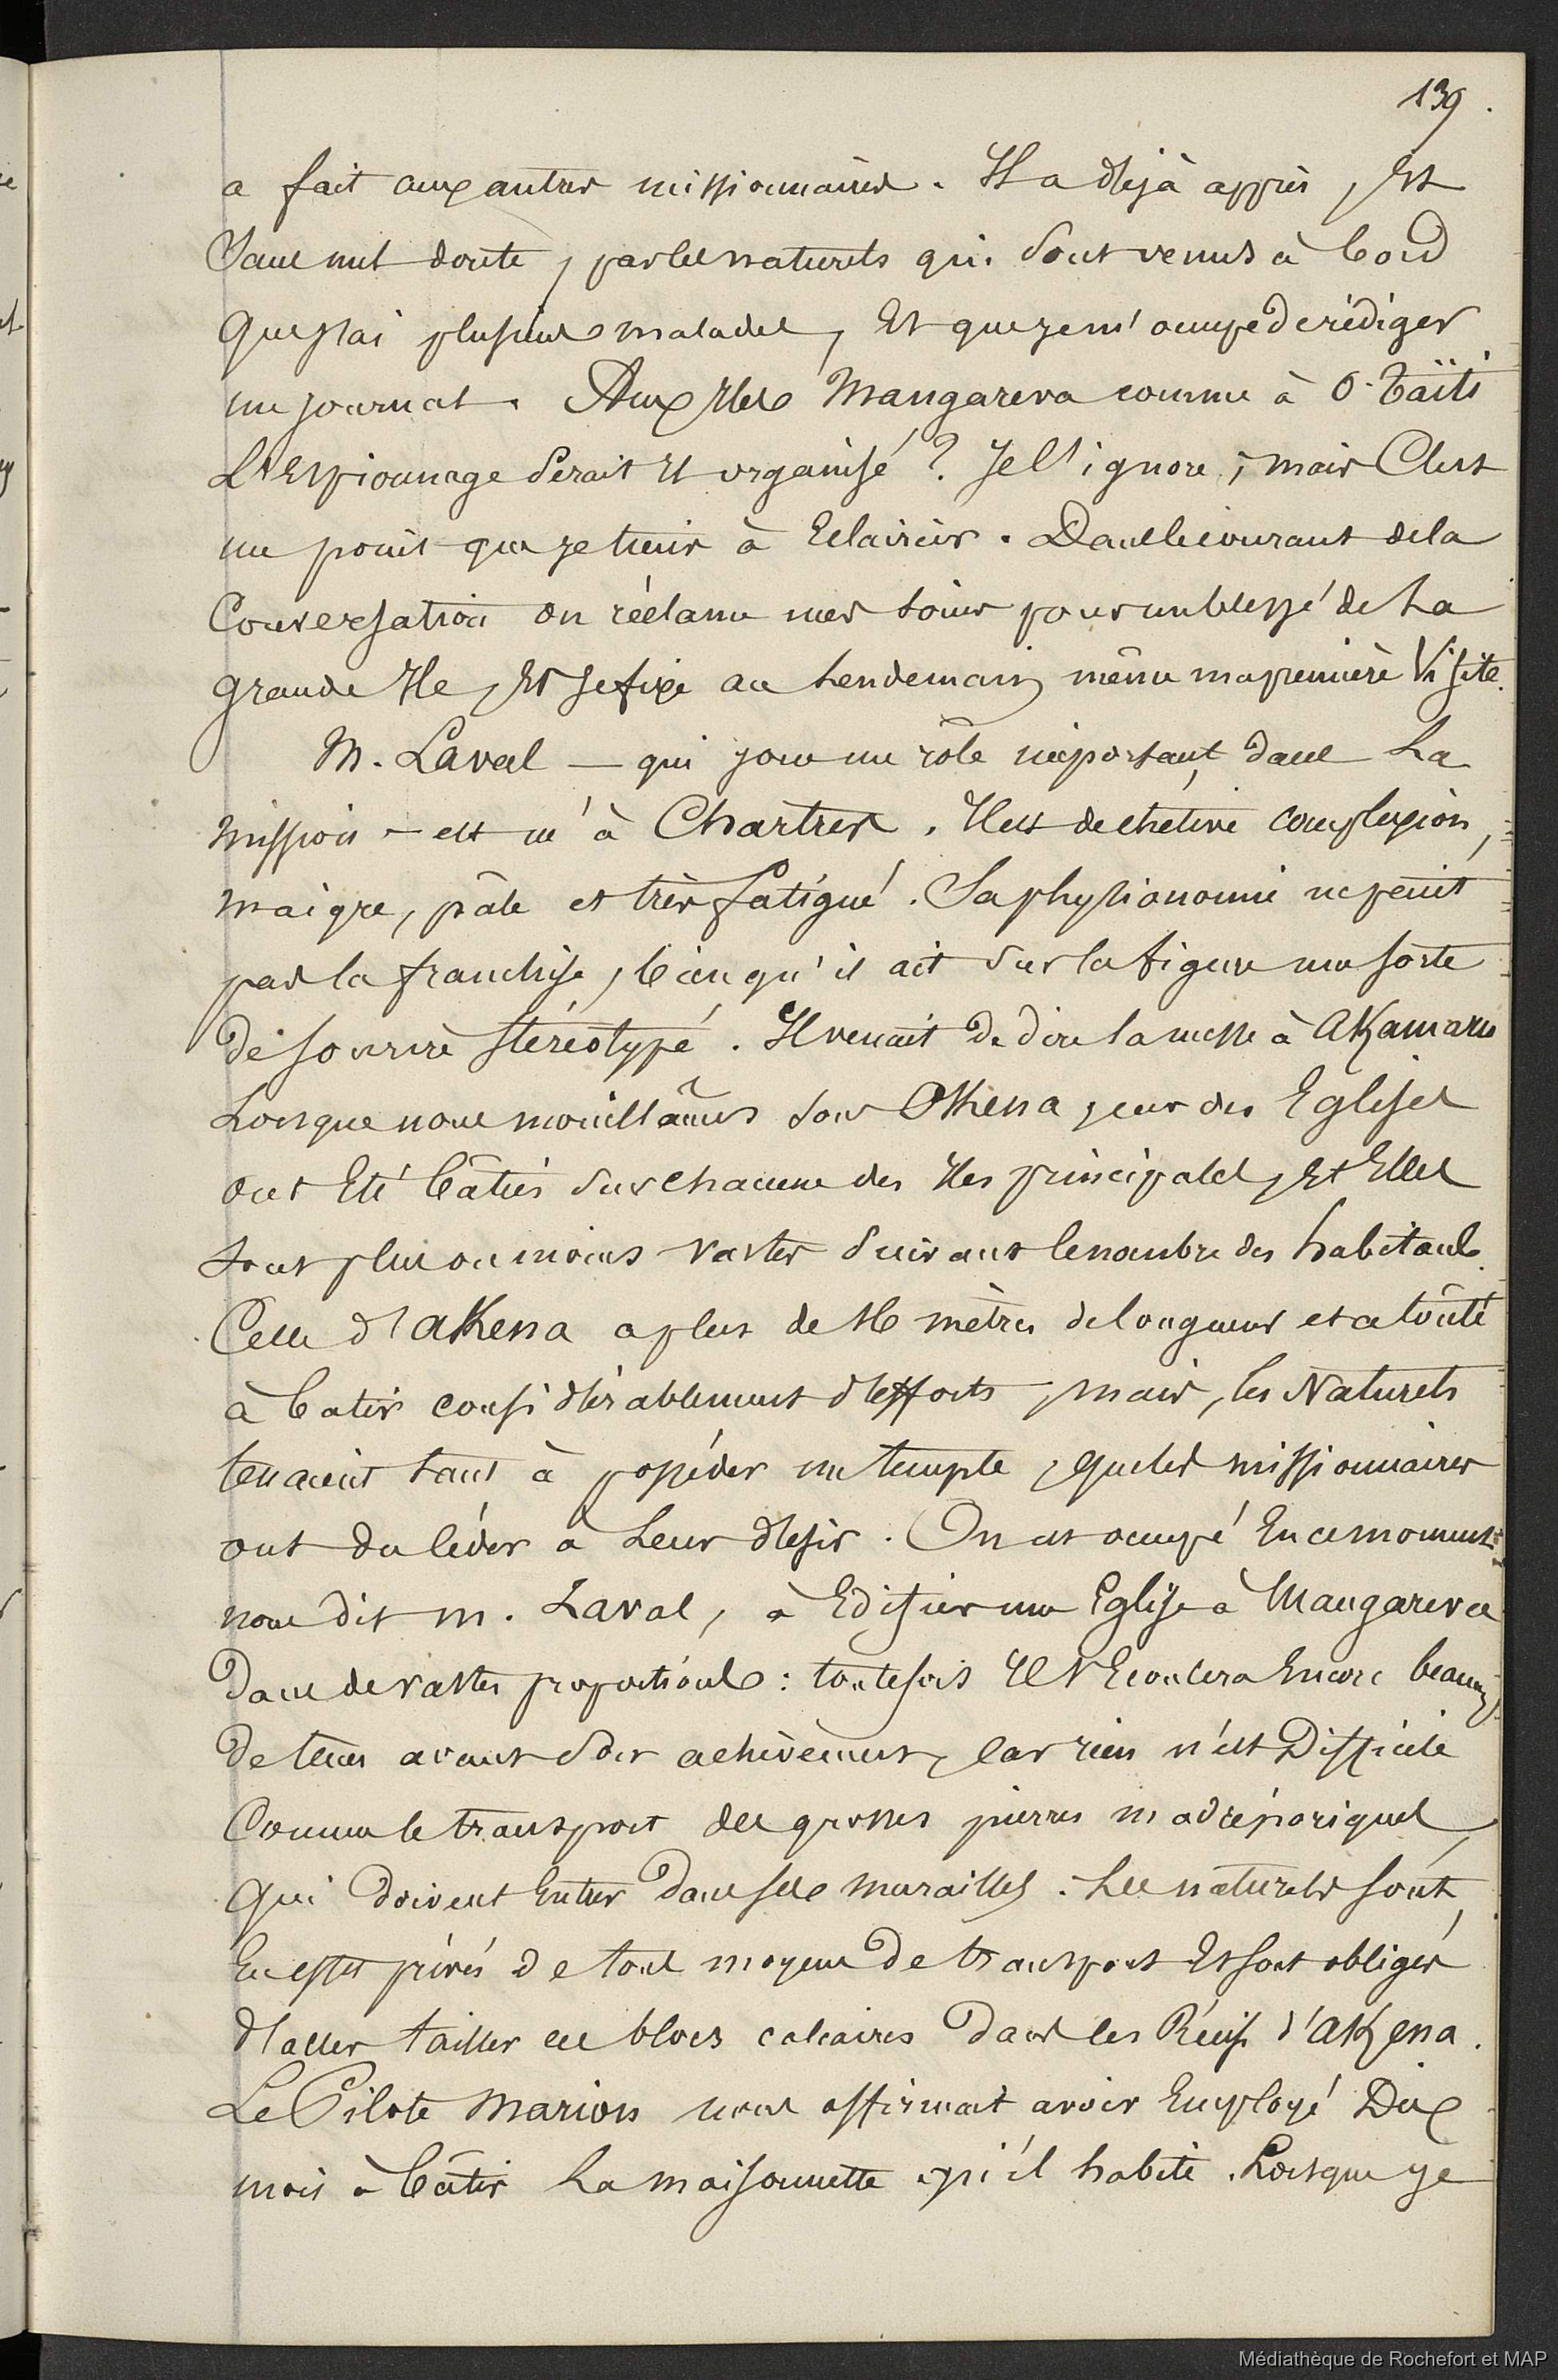 139.
a fait aux autres missionnaires. Il a déjà appris, Et
Sans nul doute, par les naturels qui sont venus à bord
que j'ai plusieurs malades, Et que je m'occupe de rédiger
un journal. Aux Iles Mangareva comme à O-Taïti
L'Espionnage Serait Il organisé ? Je l'ignore ; mais C'est
un point que je tiens à Eclaircir. Dans le courant de la
Conversation on réclame mes soins pour un blessé de La
grande Ile, Et je fixe au Lendemain même ma première Visite.
M. Laval — qui joue un rôle important dans La
mission — est né à Chartres. Il est de chétive complexion,
maigre, pâle et très fatigué. Sa physionomie ne peint
pas la franchise, bien qu'il ait sur la figure une sorte
de sourire stéréotypé. Il venait de dire la messe à Akamaru
Lorsque nous mouillâmes sous AKena, car des Eglises
ont Eté bâties sur chacune des Iles principales, Et Elles
sont plus ou moins vastes suivant le nombre des habitants.
Celle d'aKena a plus de 16 mètres de longueur et a coûté
à batir considérablement d'efforts, mais, les Naturels
tenaient tant à posséder un temple, que les missionnaires
ont du céder à Leur désir. On est occupé En ce moment
nous dit m. Laval, à Edifier une Eglise à Mangareva
Dans de vastes proportions : toutefois Il s'Ecoulera Encore beaucoup
de tems avant son achèvement, car rien n'est Difficile
Comme le transport des grosses pierres madréporiques
qui doivent Entrer Dans ses murailles. Les naturels sont,
En effet privés de tout moyen De transport Et sont obligés
d'aller tailler ces blocs calcaires Dans les Récifs d'aKena.
Le Pilote Marion nous affirmait avoir Employé Dix
mois à bâtir La maisonnette qu'il habite. Lorsque je
Médiathèque de Rochefort et MAP